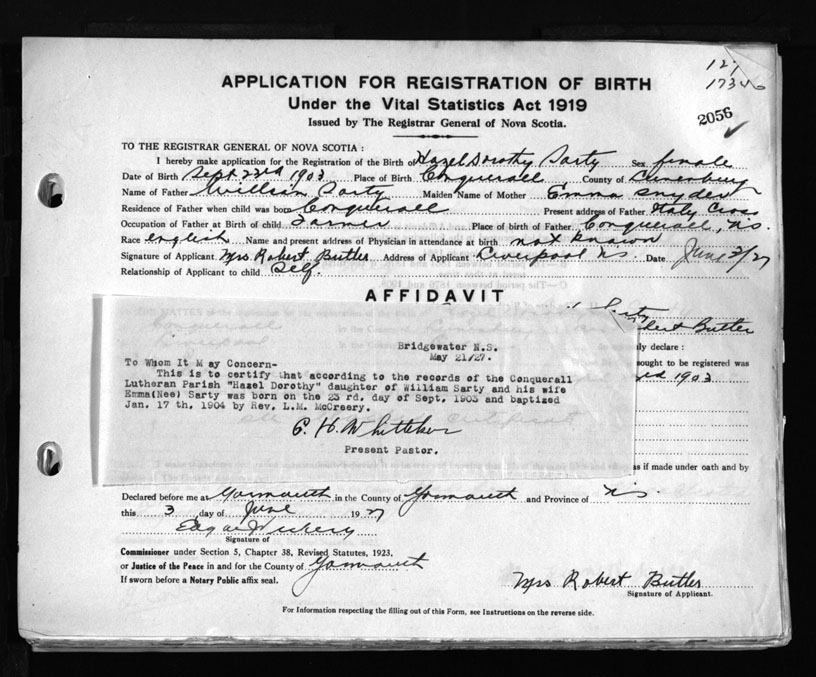 127
17346
2056
APPLICATION FOR REGISTRATION OF BIRTH
Under the Vital Statistics Act 1919
Issued by The Registrar General of Nova Scotia.
TO THE REGISTRAR GENERAL OF NOVA SCOTIA :
I hereby make application for the Registration of the Birth of Hazel Dorothy Sarty Sex female
Date of Birth Sept 23rd 1903 Place of Birth Conquerall County of Lunenburg
Name of Father William Sarty Maiden Name of Mother Emma Snyder
Residence of Father when child was born Conquerall Present address of Father Italy Cross
Occupation of Father at Birth of child Farmer Place of birth of Father Conquerall, N.S.
Race english Name and present address of Physician in attendance at birth not known
Signature of Applicant Mrs Robert Butler Address of Applicant Liverpool N.S. Date June 2/27
Relationship of Applicant to child Self.
AFFIDAVIT
Sarty
Robert Butler
ly declare :
sought to be registered was
1903
Bridgewater N.S.
May 21/27.
To Whom It May Concern-
This is to certify that according to the records of the Conquerall
Lutheran Parish "Hazel Dorothy" daughter of William Sarty and his wife
Emma(Nee) Sarty was born on the 23 rd. day of Sept. 1903 and baptized
Jan. 17 th. 1904 by Rev. L.M. McCreery.
C. H. Whitteker
Present Pastor.
as if made under oath and by
Declared before me at Yarmouth in the County of Yarmouth and Province of N.S.
this 3 day of June 1927
Signature of
Commissioner under Section 5, Chapter 38, Revised Statutes, 1923.
or Justice of the Peace in and for the County of Yarmouth
If sworn before a Notary Public affix seal.
Mrs Robert Butler
Signature of Applicant.
For Information respecting the filling out of this Form, see Instructions on the reverse side.